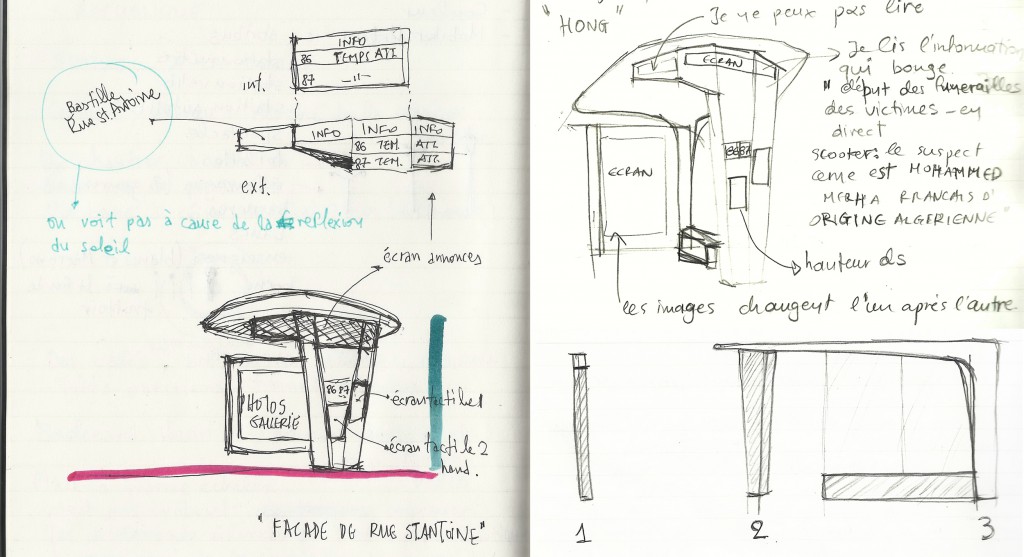 INFO
86 TEMPS ATT
87 -11-
int.
Bastille
Rue St. Antoine
INFO INFO INFO
86 TEM. ATT.
87 TEM. ATT.
ext.
on voit pas à cause de la reflexion
du soleil
écran annonces
86 87
PHOTOS
GALLERIE
écran tactile 1
écran tactile 2
hand.
"FACADE DE RUE ST ANTOINE"
"HONG"
Je ne peux pas lire
ECRAN
Je lis l'information
qui bouge.
"début des funerailles
des victimes - en
direct
scooter: le suspect
cerne est MOHAMMED
MERHA FRANCAIS D'
ORIGINE ALGERIENNE"
86 87
ECRAN
hauteur ds
les images changent l'un après l'autre
1 2 3